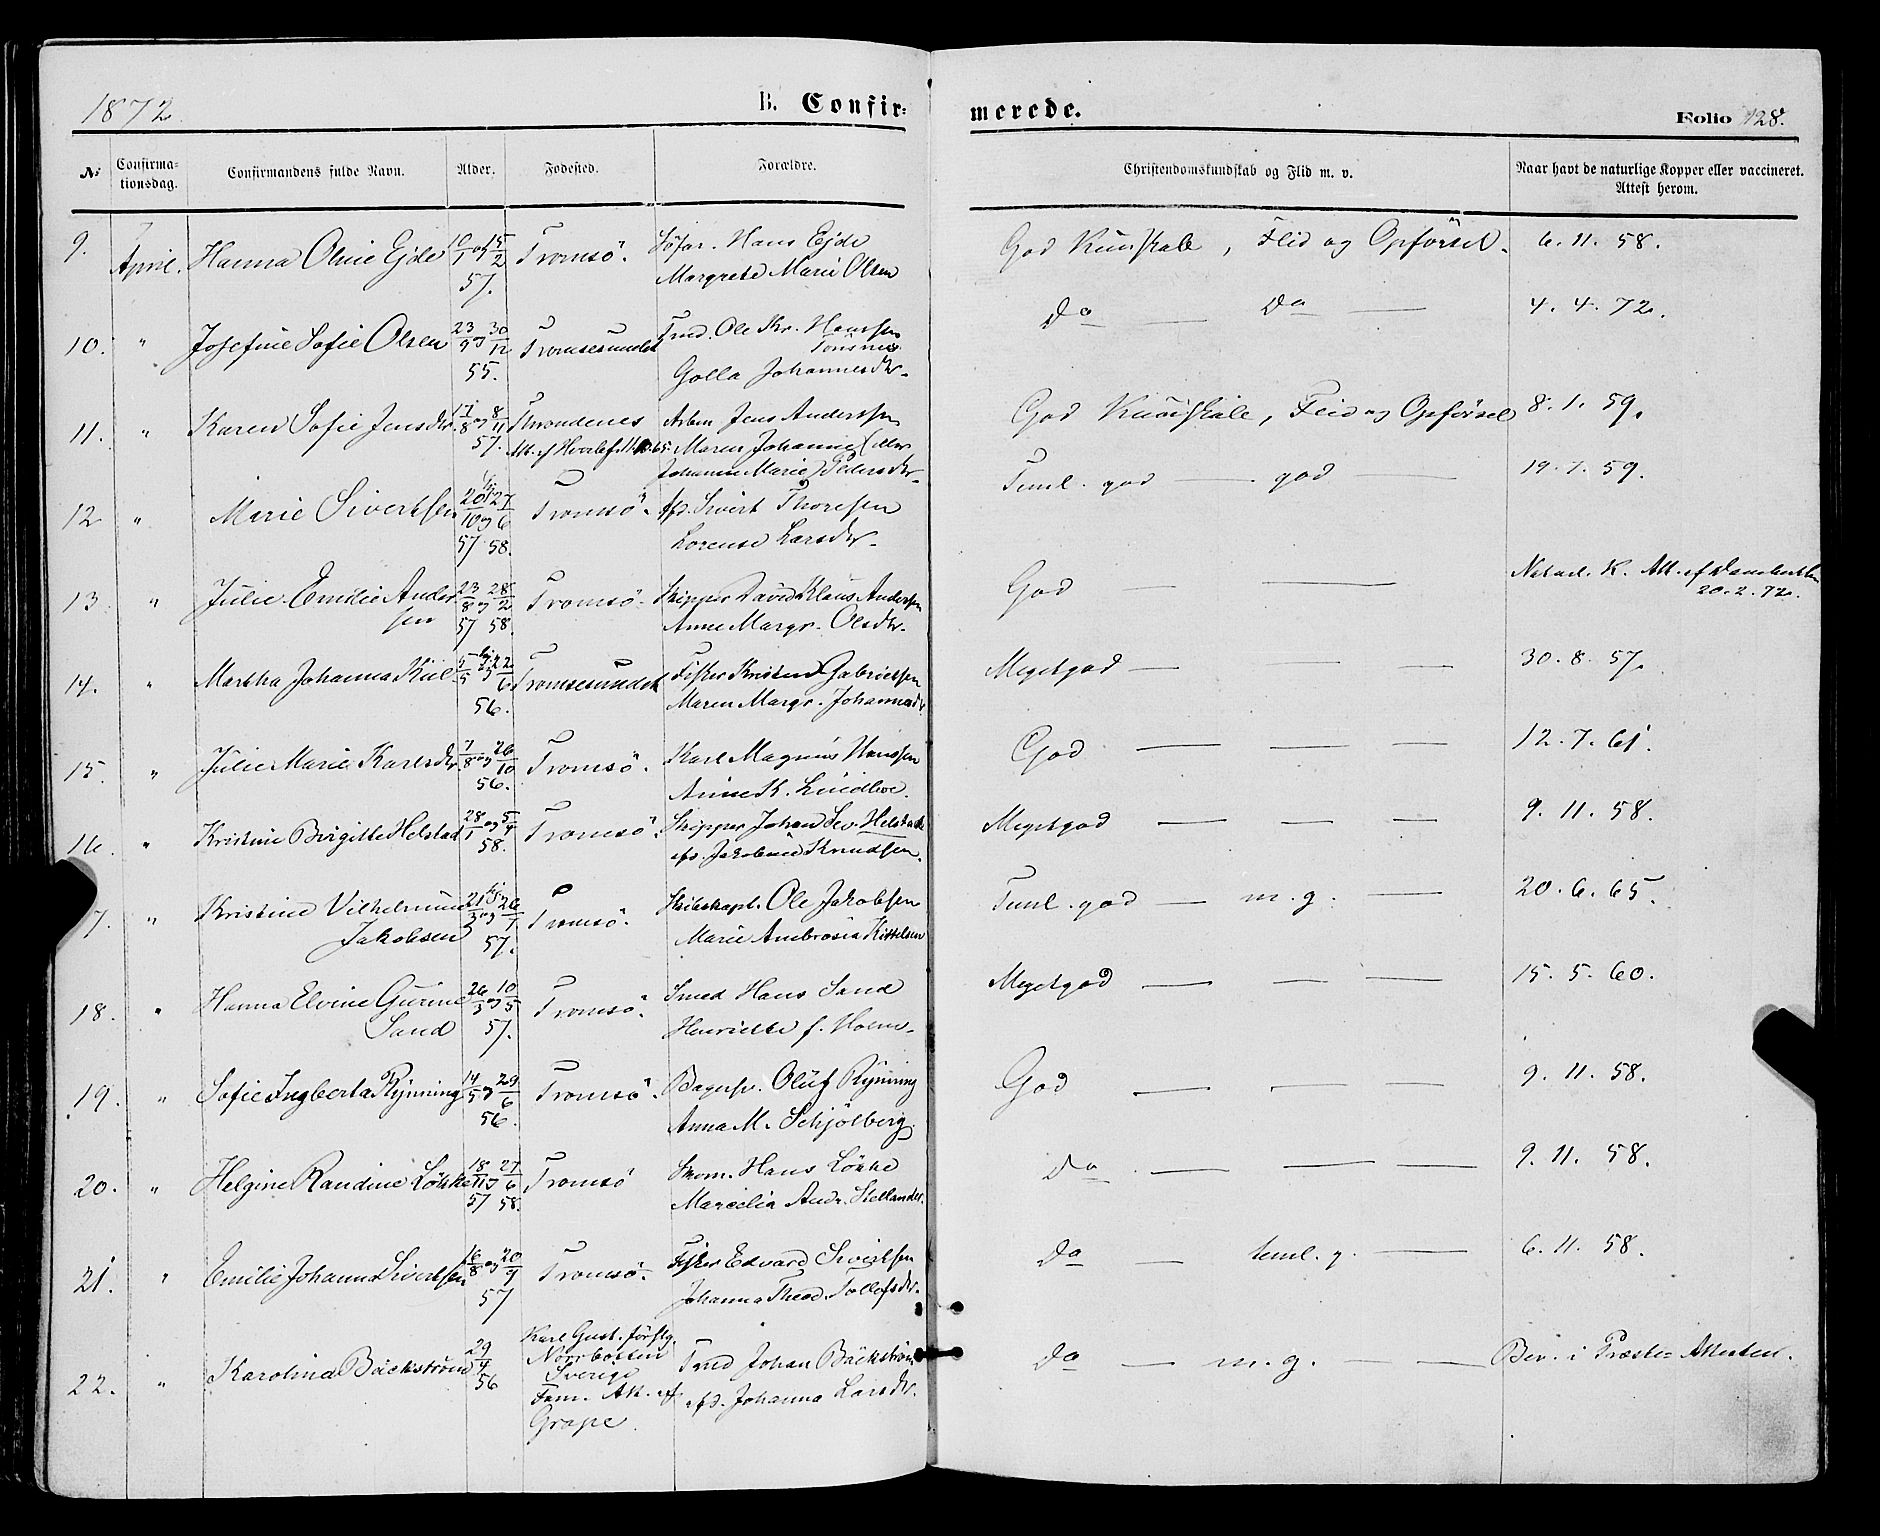 1872
B. Confir=
merede.
Folio 128.
No
Confirma-
tionsdag.
Confirmandens fulde Navn.
Alder.
Fødested.
Forældre.
Christendomskundskab og Flid m. v.
Naar havt de naturlige Kopper eller vaccineret.
Attest herom.
9. April. Hanna Olivie Ejde 10/1 og 15/2 57. Tromsö. Söfar. Hans Ejde
Margrete Marie Olsen
God Kundskab, Flid og Opförsel. 6. 11. 58.
10. " Josefine Sofie Olsen 23/9 og 30/12 55. Tromsesundet Ole Kr. Hanssen Tönsnes
Golla Johannesdtr.
Do — Do — 4. 4. 72.
11. " Karen Sofie Jensdtr. 17/8 og 8/11 57. Throndenes Arbm Jens Anderssen
Maren Johanne (eller
Johanne Marie) Pedersdtr.
God Kundskab, Flid og Opförsel 8. 1. 59.
12 " Marie Sivertsen 20/10 57 og 27/6 58. Tromsö. Afd. Sivert Thoresen
Lorense Larsdtr.
Teml. god — god — 19. 7. 59.
13. " Julie Emilie Ander
sen 23/8 57 og 28/2 58. Tromsö. Skipper David Klaus Andersen
Anne Margr. Olsdtr.
God — — Naturl. K. Att. af Danielssen
20. 2. 72.
14. " Martha Johanna Kiil 5/5 og 22/6 56. Tromsesundet Fisker Kristen Gabrielsen
Maren Margr. Johannesdtr.
Megetgod — — — 30. 8. 57.
15. " Julie Marie Karlsdtr. 7/8 og 26/10 56. Tromsö. Karl Magnus Hanssen
Anne K. Lindlive.
God — — — 12. 7. 61.
16. " Kristine Birgitte Helstad 28/1 og 5/4 58. Tromsö. Skipper Johan Sev. Helstad
afd. Jakobine Knudsen.
Megetgod — — — 9. 11. 58.
17. " Kristine Vilhelmine
Jakobsen 21/3 og 26/7 57. Tromsö. Skibskapt. Ole Jakobsen
Marie Ambrosia Kittelsen
Teml. god — m. g. — 20. 6. 65.
18. " Hanna Elvine Gurine
Sand 26/3 og 10/5 57. Tromsö. Smed Hans Sand
Henriette f. Holm.
Megetgod — — — 15. 5. 60.
19. " Sofie Ingberta Rynning 14/5 og 29/6 56. Tromsö. Bagersv. Oluf Rynning
Anna M. Schjölberg.
God — — 9. 11. 58.
20. " Helgine Randine Lökke 18/11 57 og 27/6 58. Tromsö Skom. Hans Lökke
Marcelia Andr. Stellander.
Do. — — — 9. 11. 58.
21. " Emilie Johanna Sivertsen 16/8 og 20/9 57 Tromsö. Fisker Edvard Sivertsen
Johanna Theod. Tollefsdtr.
Do — teml. g. — 6. 11. 58.
22. " Karolina Bäckström 29/4 56 Karl Gust. forslg.
Norrbotten
Sverige
Fam. Att. af
Grape. Johan Bäckström
afd. Johanna Larsdtr.
Do — m. g. — — Bev. i Præste-Attesten.